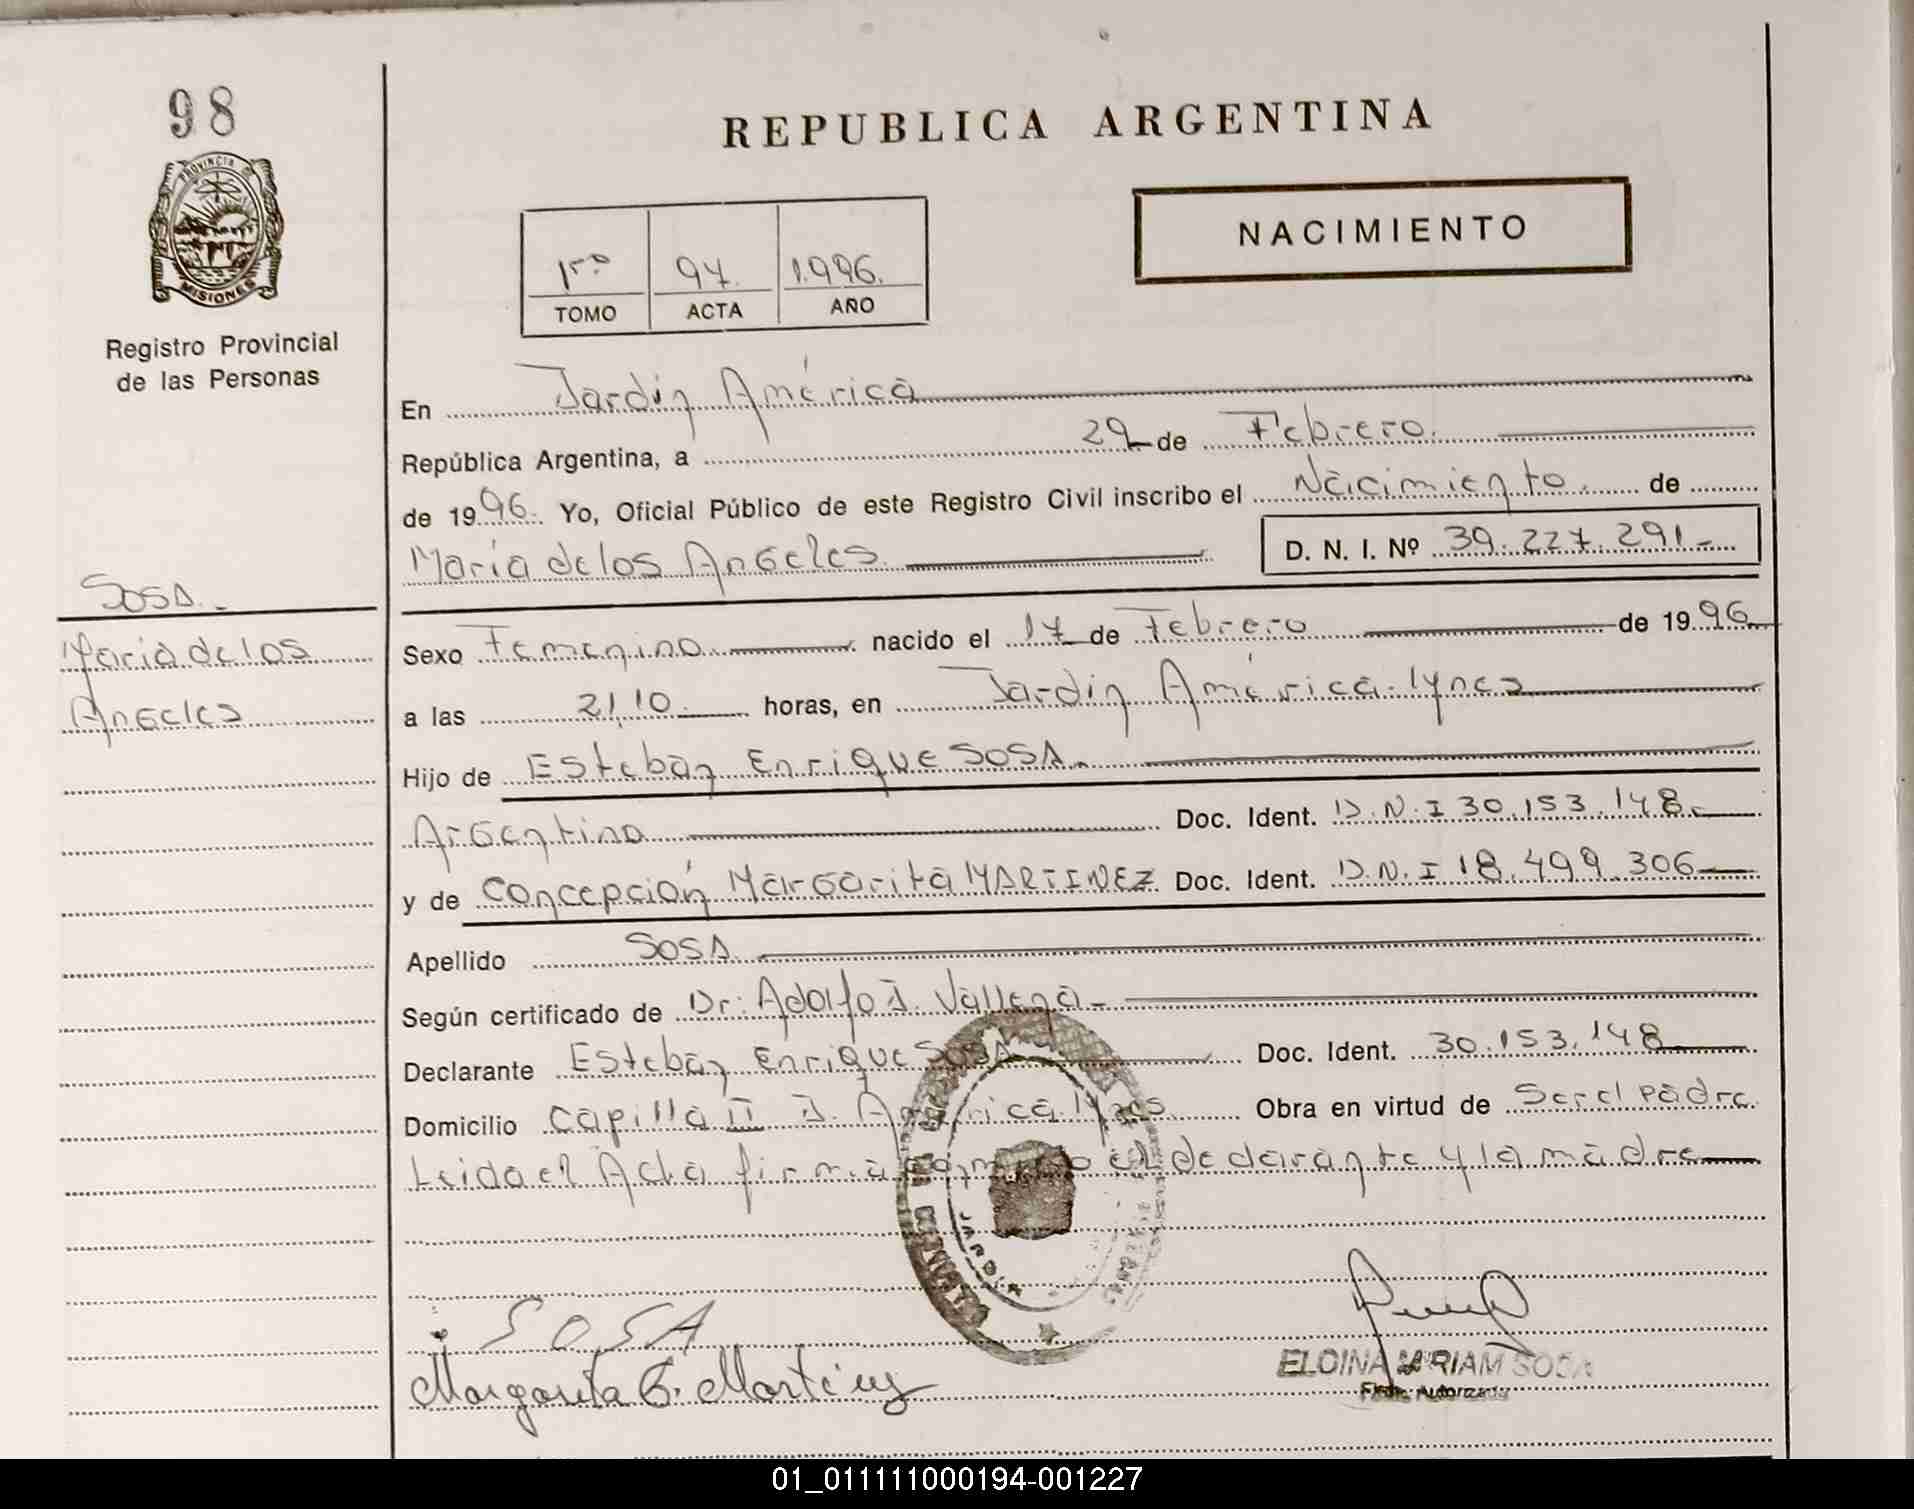 98
PROVINCIA DE
MISIONES
Registro Provincial
de las Personas
REPUBLICA ARGENTINA
NACIMIENTO
1ro 97. 1.996.
TOMO ACTA AÑO
En Jardín América
República Argentina, a 29 de Febrero.
de 1996. Yo, Oficial Público de este Registro Civil inscribo el Nacimiento. de
María de los Angeles. D. N. I. Nº 39.227.291-
SOSA.-
María de los
Angeles
Sexo Femenino nacido el 17 de Febrero de 1996
a las 21,10. horas, en Jardín América-Mnes
Hijo de Esteban Enrique SOSA.
Argentino Doc. Ident. D.N.I 30.153.148.-
y de Concepción Margarita MARTINEZ Doc. Ident. D.N.I 18.499.306
Apellido SOSA
Según certificado de Dr. Adolfo J. Vallena-
Declarante Esteban Enrique SOSA Doc. Ident. 30.153.148
Domicilio Capilla II J. América.Mnes Obra en virtud de Ser el padre
Leida el Acta firma conmigo el declarante y la madre
JARDIN
SOSA
Margarita C. Martínez
ELOINA MIRIAM SOSA
Autorizada
01_011111000194-001227